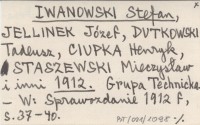 IWANOWSKI Stefan,
JELLINEK Józef, DUTKOWSKI
Tadeusz, CIUPKA Henryk,
STASZEWSKI Mieczysław
i inni 1912. Grupa Techniczna
- W: Sprawozdanie 1912 r,
s. 37-40.